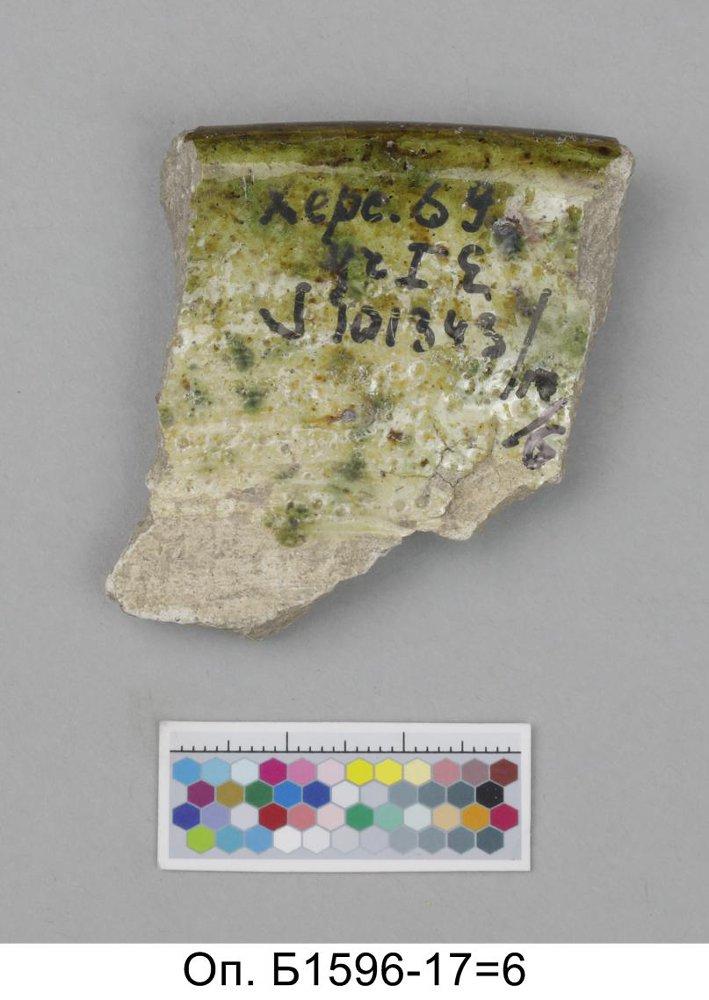 Херс. 69
уч I Е
√101343/
Оп. Б1596-17=6